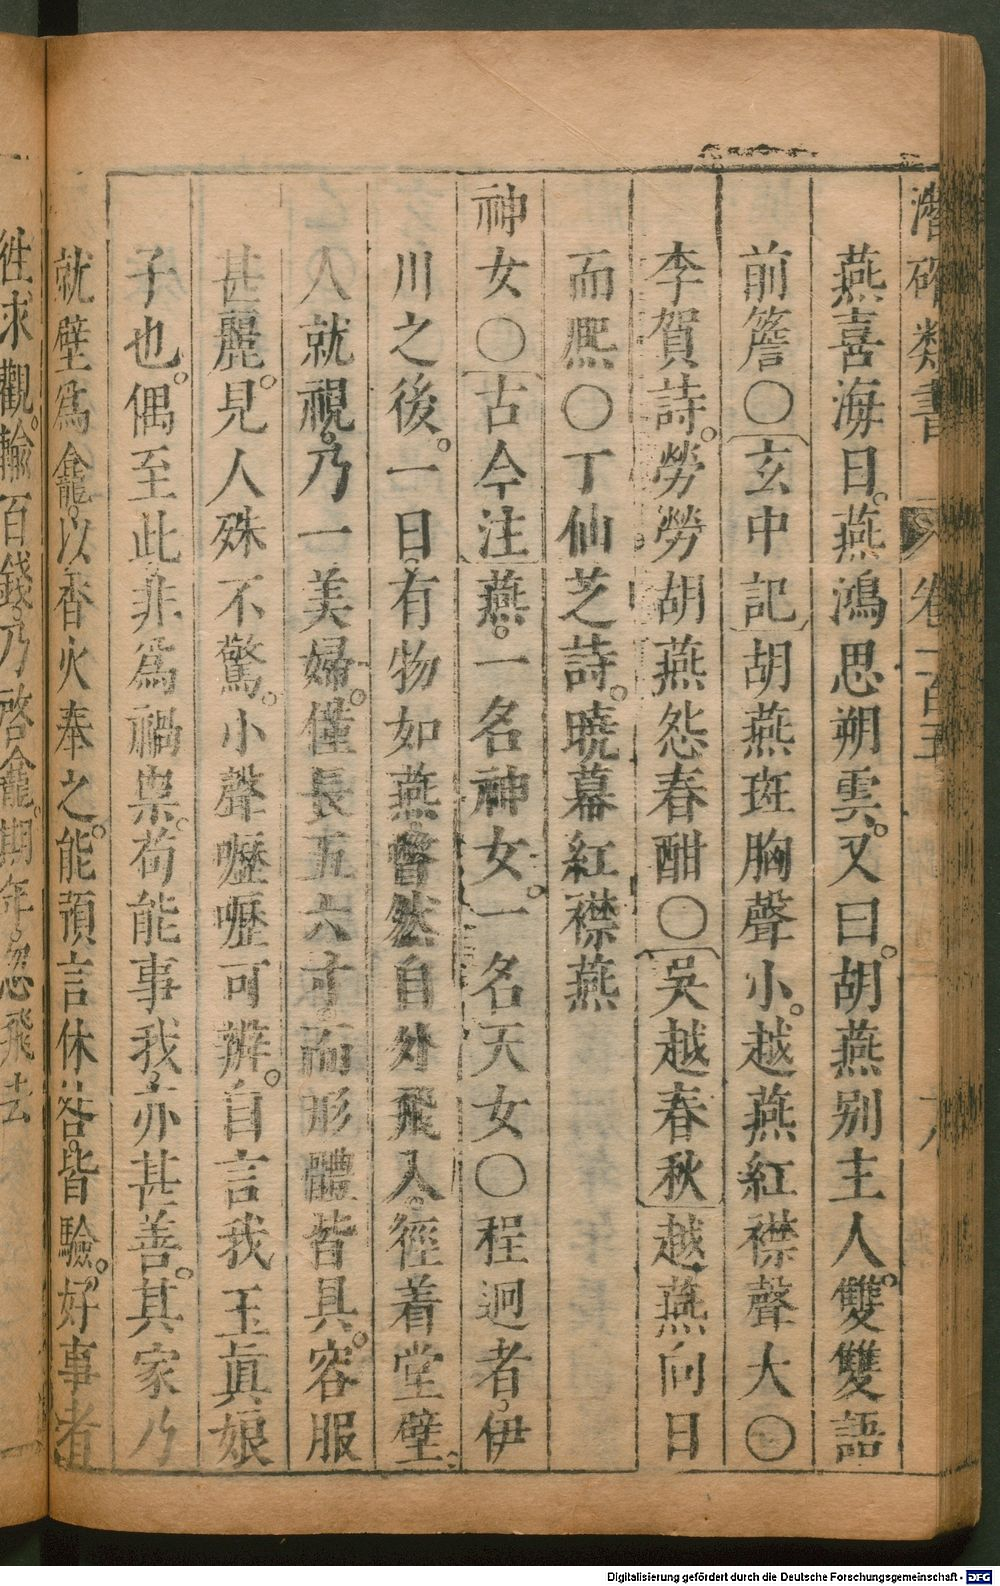 潛確類書 卷一百五 十八
燕喜海日。燕鴻思朔雲。又曰。胡燕别主人。雙雙語
前簷〇〔玄中記〕胡燕斑胸聲小。越燕紅襟聲大〇
李賀詩。勞勞胡燕怨春酣〇〔吳越春秋〕越燕向日
而熈〇丁仙芝詩。曉幕紅襟燕
神女〇〔古今注〕燕。一名神女。一名天女〇程迥者。伊
川之後。一日。有物如燕。瞥然自外飛入。徑着堂壁。
人就視。乃一美婦。僅長五六寸。而形體皆具。容服
甚麗。見人殊不驚。小聲嚦嚦可辨。自言我玉眞娘
子也。偶至此。非爲禍祟。苟能事我。亦甚善。其家乃
就壁爲龕。以香火奉之。能預言休咎。皆驗。好事者
徃求觀。輸百錢。乃啓龕。期年。忽飛去
Digitalisierung gefördert durch die Deutsche Forschungsgemeinschaft - DFG